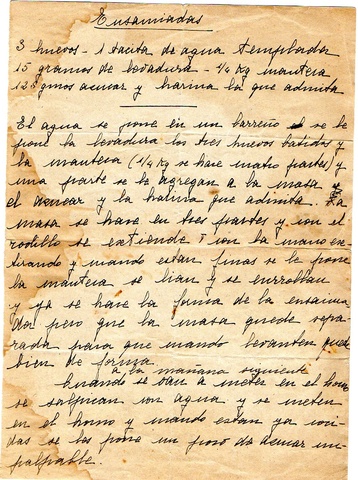 Ensaimadas
3 huevos - 1 tacita de agua templada
15 gramos de levadura - ¼ Kg manteca
125 gmos azucar y harina la que admita
El agua se pone en un barreño se le
pone la levadura los tres huevos batidos y
la manteca (¼ Kg se hace cuatro partes) y
una parte se le agregan a la masa y
el azucar y la harina que admita. La
masa se hace en tres partes y con el
rodillo se extiende y con la mano es-
tirando y cuando estan finas se le pone
la manteca se lian y se enrrollan
y ya se hace la forma de la ensaima
da pero que la masa quede sepa
rada para que cuando levanten quede
bien de forma.
a la mañana siguiente
Cuando se van a meter en el horno
se salpican con agua y se meten
en el horno y cuando estan ya coci
das se les pone un poco de azucar im-
palpable.